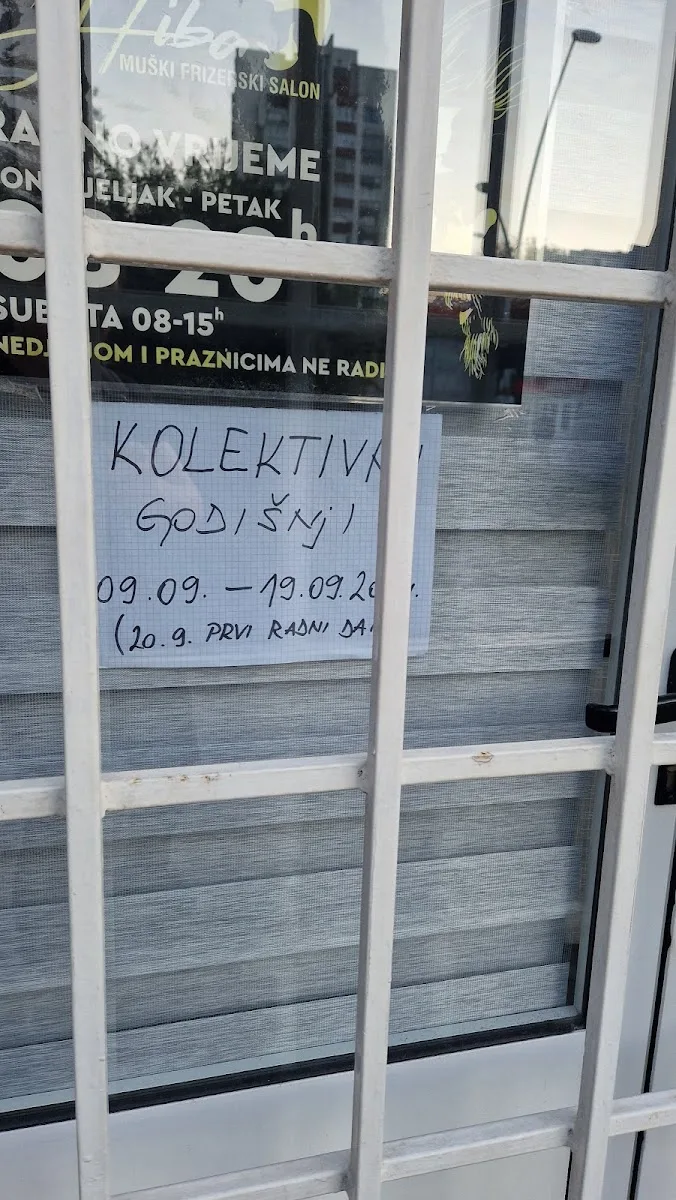 Hiba
MUŠKI FRIZERSKI SALON
RADNO VRIJEME
PONEDJELJAK - PETAK
08-20h
SUBOTA 08-15h
NEDJELJOM I PRAZNICIMA NE RADI
KOLEKTIVNI
GODIŠNjI
09.09. – 19.09.20
(20.9. PRVI RADNI DAN